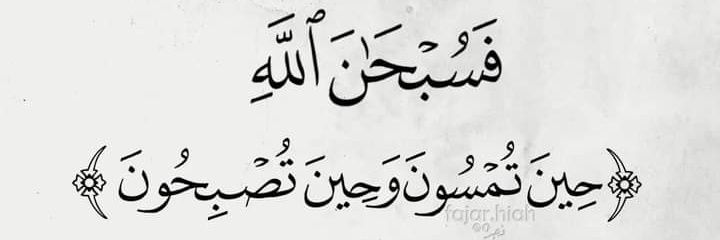 فَسُبْحَٰنَ ٱللَّهِ
﴿حِينَ تُمْسُونَ وَحِينَ تُصْبِحُونَ﴾
fajar.hiah